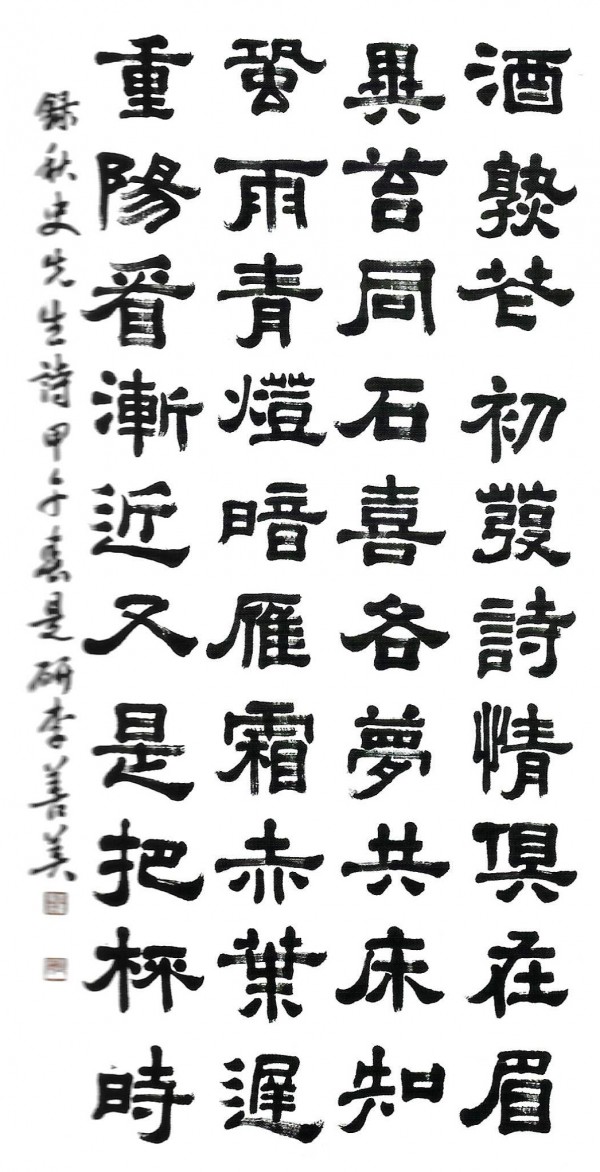 酒熟花初發詩情俱在眉
異苔同石喜各夢共床知
蛩雨青燈暗雁霜赤葉遲
重陽看漸近又是把杯時
錄秋史先生詩甲午春是研李善美